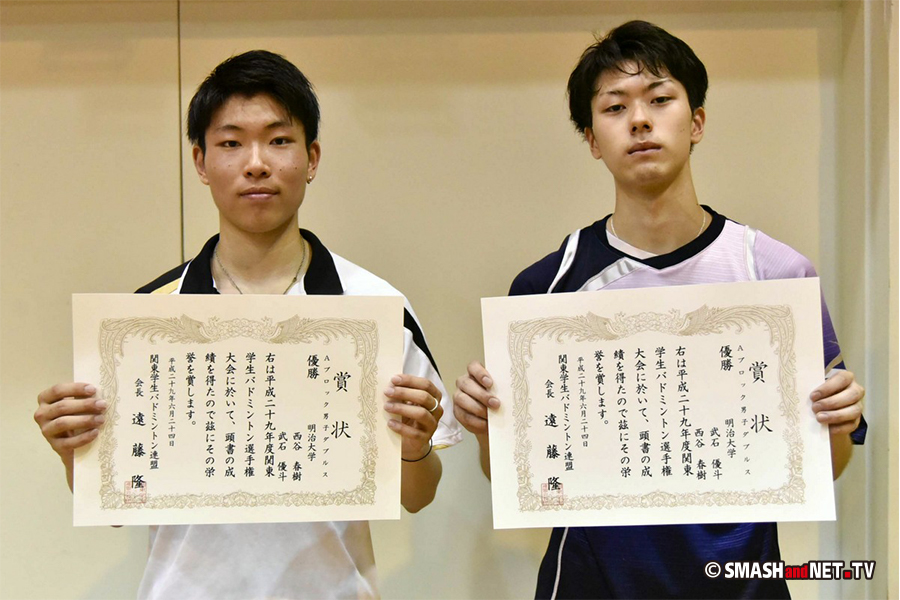 賞状
Aブロック男子ダブルス
優勝
明治大学
西谷 春樹
武石 優斗
右は平成二十九年度関東
学生バドミントン選手権
大会に於いて、頭書の成
績を得たので茲にその栄
誉を賞します。
平成二十九年六月二十四日
関東学生バドミントン連盟
会長 遠藤 隆
賞状
Aブロック男子ダブルス
優勝
明治大学
武石 優斗
西谷 春樹
右は平成二十九年度関東
学生バドミントン選手権
大会に於いて、頭書の成
績を得たので茲にその栄
誉を賞します。
平成二十九年六月二十四日
関東学生バドミントン連盟
会長 遠藤 隆
© SMASHandNET.TV